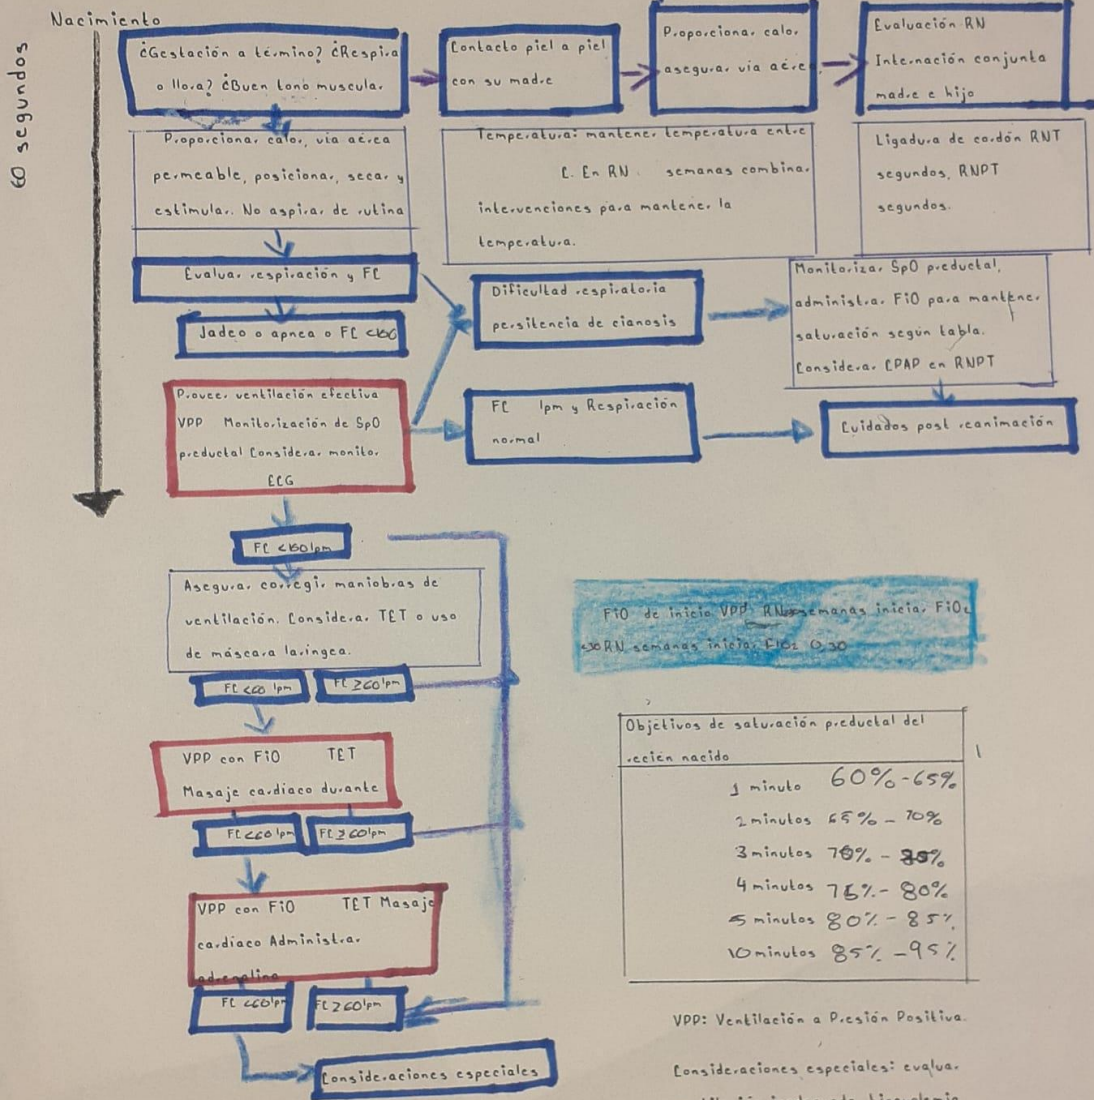 Nacimiento
60 segundos
¿Gestación a término? ¿Respira
o llora? ¿Buen tono muscular
Contacto piel a piel
con su madre
Proporcionar calor
asegurar via aérea
Evaluación RN
Internación conjunta
madre e hijo
Proporcionar calor, via aérea
permeable, posicionar, secar y
estimular. No aspirar de rutina
Temperatura: mantener temperatura entre
C. En RN semanas combinar
intervenciones para mantener la
temperatura.
Ligadura de cordón RNT
segundos, RNPT
segundos.
Evaluar respiración y FC
Jadeo o apnea o FC <100
Dificultad respiratoria
persitencia de cianosis
Monitorizar SpO preductal,
administrar FiO para mantener
saturación según tabla.
Considerar CPAP en RNPT
Proveer ventilación efectiva
VPP Monitorización de SpO
preductal Considerar monitor
ECG
FC lpm y Respiración
normal
Cuidados post reanimación
FC <100 lpm
Asegurar corregir maniobras de
ventilación. Considerar TET o uso
de máscara laringea.
FC <60 lpm
FC ≥60 lpm
FiO de inicio VPP RN semanas iniciar FiO2
<30 RN semanas iniciar FiO2 0,30
VPP con FiO TET
Masaje cardiaco durante
FC <60 lpm
FC ≥60 lpm
VPP con FiO TET Masaje
cardíaco Administrar
adrenalina
FC <60 lpm
FC ≥60 lpm
Consideraciones especiales
Objetivos de saturación preductal del
recién nacido
1 minuto 60%-65%
2 minutos 65%-70%
3 minutos 70%-
4 minutos 75%-80%
5 minutos 80%-85%
10 minutos 85%-95%
VPP: Ventilación a Presión Positiva.
Consideraciones especiales: evaluar